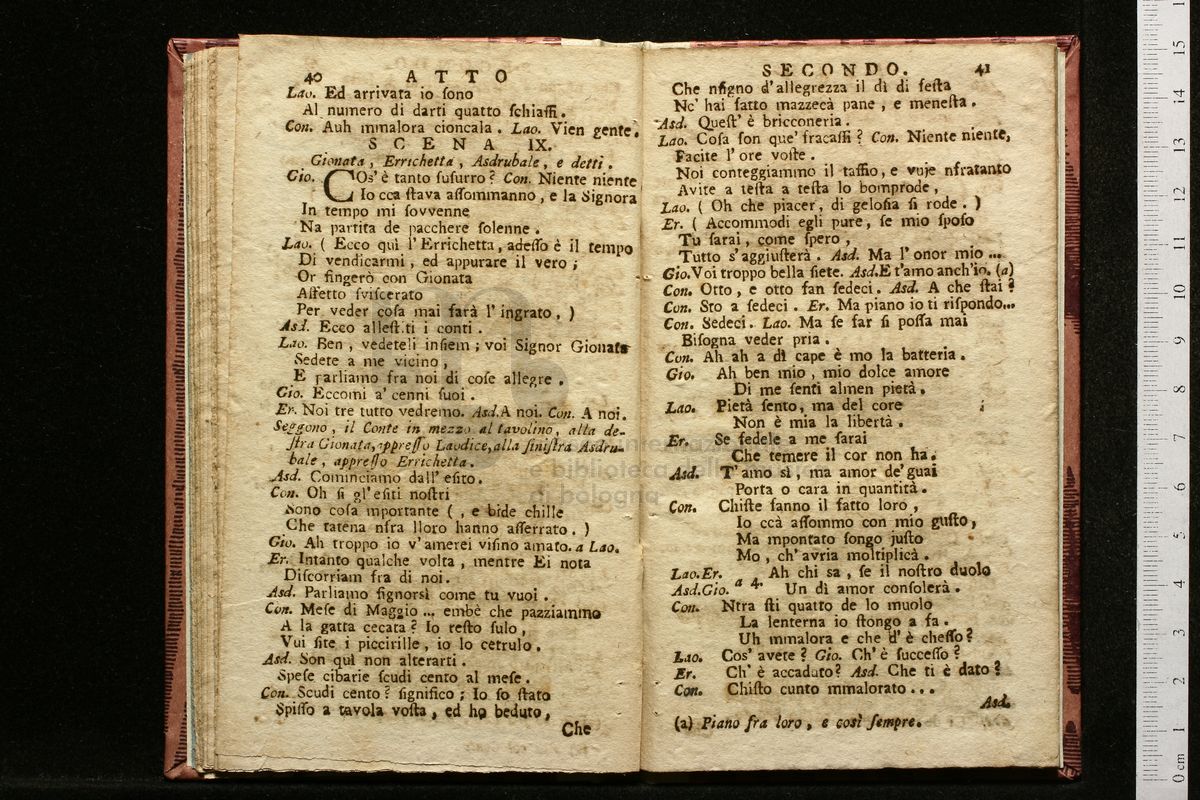 40 ATTO
Lao. Ed arrivata io sono
Al numero di darti quatto schiaffi.
Con. Auh mmalora cioncala. Lao. Vien gente.
SCENA IX.
Gionata, Errichetta, Asdrubale, e detti.
Gio. COs' è tanto susurro? Con. Niente niente
Io cca stava assommanno, e la Signora
In tempo mi sovvenne
Na partita de pacchere solenne.
Lao. ( Ecco quì l'Errichetta, adesso è il tempo
Di vendicarmi, ed appurare il vero;
Or fingerò con Gionata
Affetto sviscerato
Per veder cosa mai farà l'ingrato, )
Asd. Ecco allest.ti i conti.
Lao. Ben, vedeteli insiem; voi Signor Gionata
Sedete a me vicino,
E parliamo fra noi di cose allegre.
Gio. Eccomi a' cenni suoi.
Er. Noi tre tutto vedremo. Asd. A noi. Con. A noi.
Seggono, il Conte in mezzo al tavolino, alla de-
stra Gionata, appresso Laodice, alla sinistra Asdru-
bale, appresso Errichetta.
Asd. Cominciamo dall' esito.
Con. Oh si gl'esiti nostri
Sono cosa mportante (, e bide chille
Che tatena nfra lloro hanno afferrato. )
Gio. Ah troppo io v'amerei visino amato. a Lao.
Er. Intanto qualche volta, mentre Ei nota
Discorriam fra di noi.
Asd. Parliamo signorsì come tu vuoi.
Con. Mese di Maggio ... embè che pazziammo
A la gatta cecata? Io resto sulo,
Vui site i piccirille, io lo cetrulo.
Asd. Son quì non alterarti.
Spese cibarie scudi cento al mese.
Con. Scudi cento? significo; Io so stato
Spisso a tavola vosta, ed ho beduto,
Che
SECONDO. 41
Che nfigno d'allegrezza il dì di festa
Nc' hai fatto mazzecà pane, e menesta.
Asd. Quest' è bricconeria.
Lao. Cosa son que' fracassi? Con. Niente niente,
Facite l'ore voste.
Noi conteggiammo il taffio, e vuje nfratanto
Avite a testa a testa lo bomprode,
Lao. ( Oh che piacer, di gelosia si rode. )
Er. ( Accommodi egli pure, se mio sposo
Tu sarai, come spero,
Tutto s'aggiusterà. Asd. Ma l'onor mio ...
Gio. Voi troppo bella siete. Asd. E t'amo anch'io. (a)
Con. Otto, e otto fan sedeci. Asd. A che stai?
Con. Sto a sedeci. Er. Ma piano io ti rispondo...
Con. Sedeci. Lao. Ma se far si possa mai
Bisogna veder pria.
Con. Ah ah a dì cape è mo la batteria.
Gio. Ah ben mio, mio dolce amore
Di me senti almen pietà.
Lao. Pietà sento, ma del core
Non è mia la libertà.
Er. Se fedele a me sarai
Che temere il cor non ha.
Asd. T'amo sì, ma amor de'guai
Porta o cara in quantità.
Con. Chiste fanno il fatto loro,
Io ccà assommo con mio gusto,
Ma mpontato songo justo
Mo, ch'avria moltiplicà.
Lao.Er. Ah chi sa, se il nostro duolo
Asd.Gio. a 4. Un dì amor consolerà.
Con. Ntra sti quatto de lo muolo
La lenterna io stongo a fa.
Uh mmalora e che d'è chesso?
Lao. Cos' avete? Gio. Ch'è successo?
Er. Ch' è accaduto? Asd. Che ti è dato?
Con. Chisto cunto mmalorato ...
Asd.
(a) Piano fra loro, e così sempre.